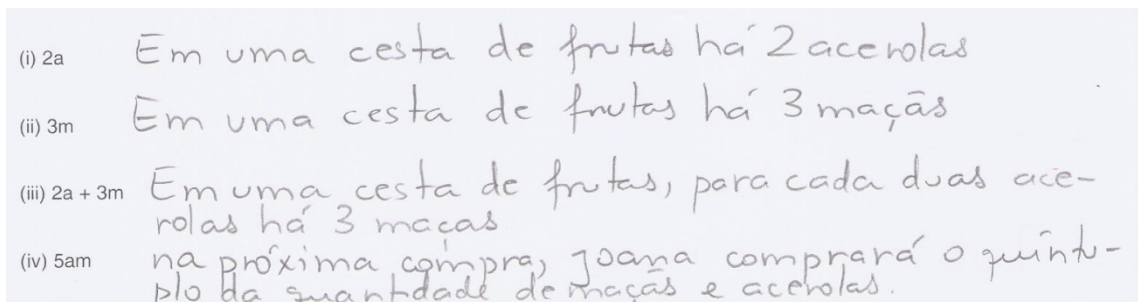 (i) 2a Em uma cesta de frutas há 2 acerolas
(ii) 3m Em uma cesta de frutas há 3 maçãs
(iii) 2a + 3m Em uma cesta de frutas, para cada duas ace-
rolas há 3 macas
(iv) 5am na próxima compra, Joana comprará o quíntu-
plo da quantidade de maçãs e acerolas.